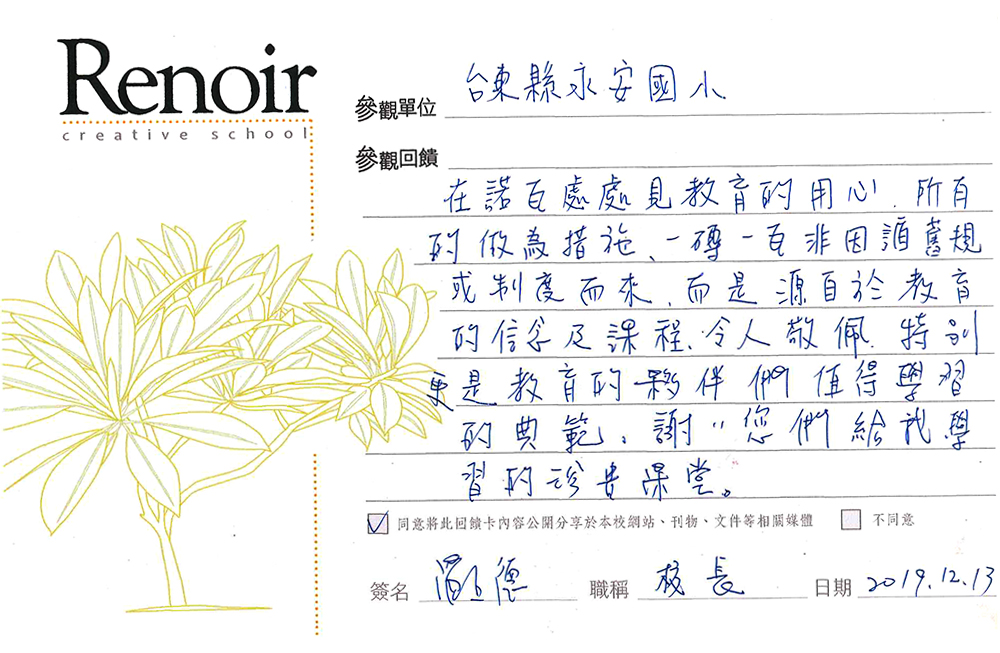 Renoir
creative school
參觀單位 台東縣永安國小
參觀回饋
在諾瓦處處見教育的用心.所有
的做為措施、一磚一瓦非因循舊規
或制度而來,而是源自於教育
的信念及課程,令人敬佩.特別
更是教育的夥伴們值得學習
的典範。謝〃您們給我學
習的珍貴課堂。
同意將此回饋卡內容公開分享於本校網站、刊物、文件等相關媒體 不同意
簽名 德 職稱 校長 日期 2019.12.13